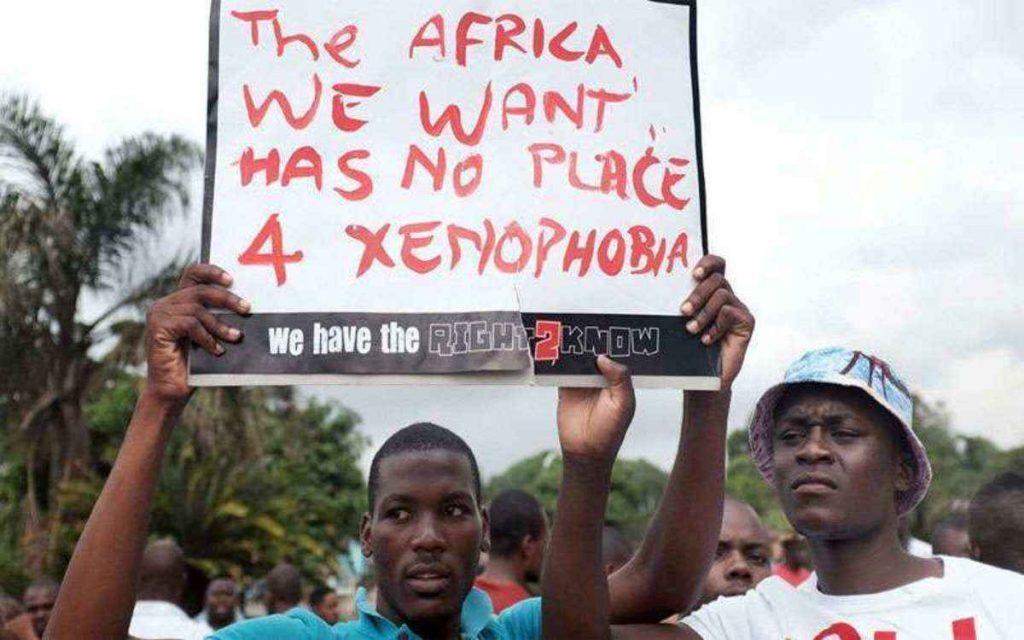 The AFRICA
WE WANT
HAS NO PLACE
4 XENOPHOBIA
we have the RIGHT2KNOW